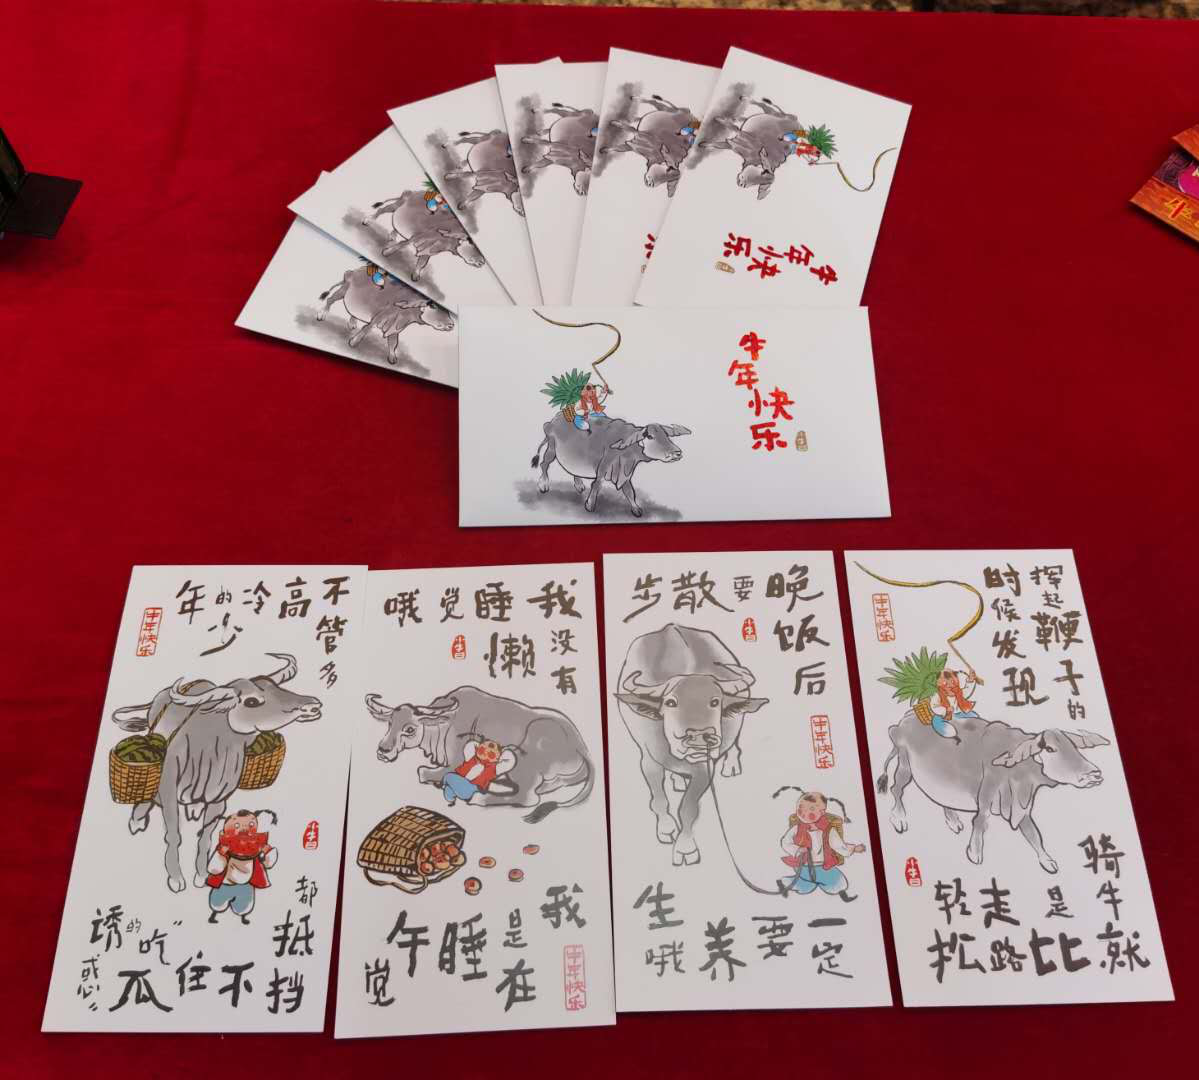 牛年快乐
牛年快乐
不管多
高冷的少年
牛年快乐
都抵挡
不住
“吃瓜
的诱惑”
我没有
睡懒觉哦
我是在
睡午觉
牛年快乐
晚饭后
要散步
牛年快乐
一定要
养生哦
挥起鞭子的
时候发现
牛年快乐
骑牛就
是比
走路
轻松